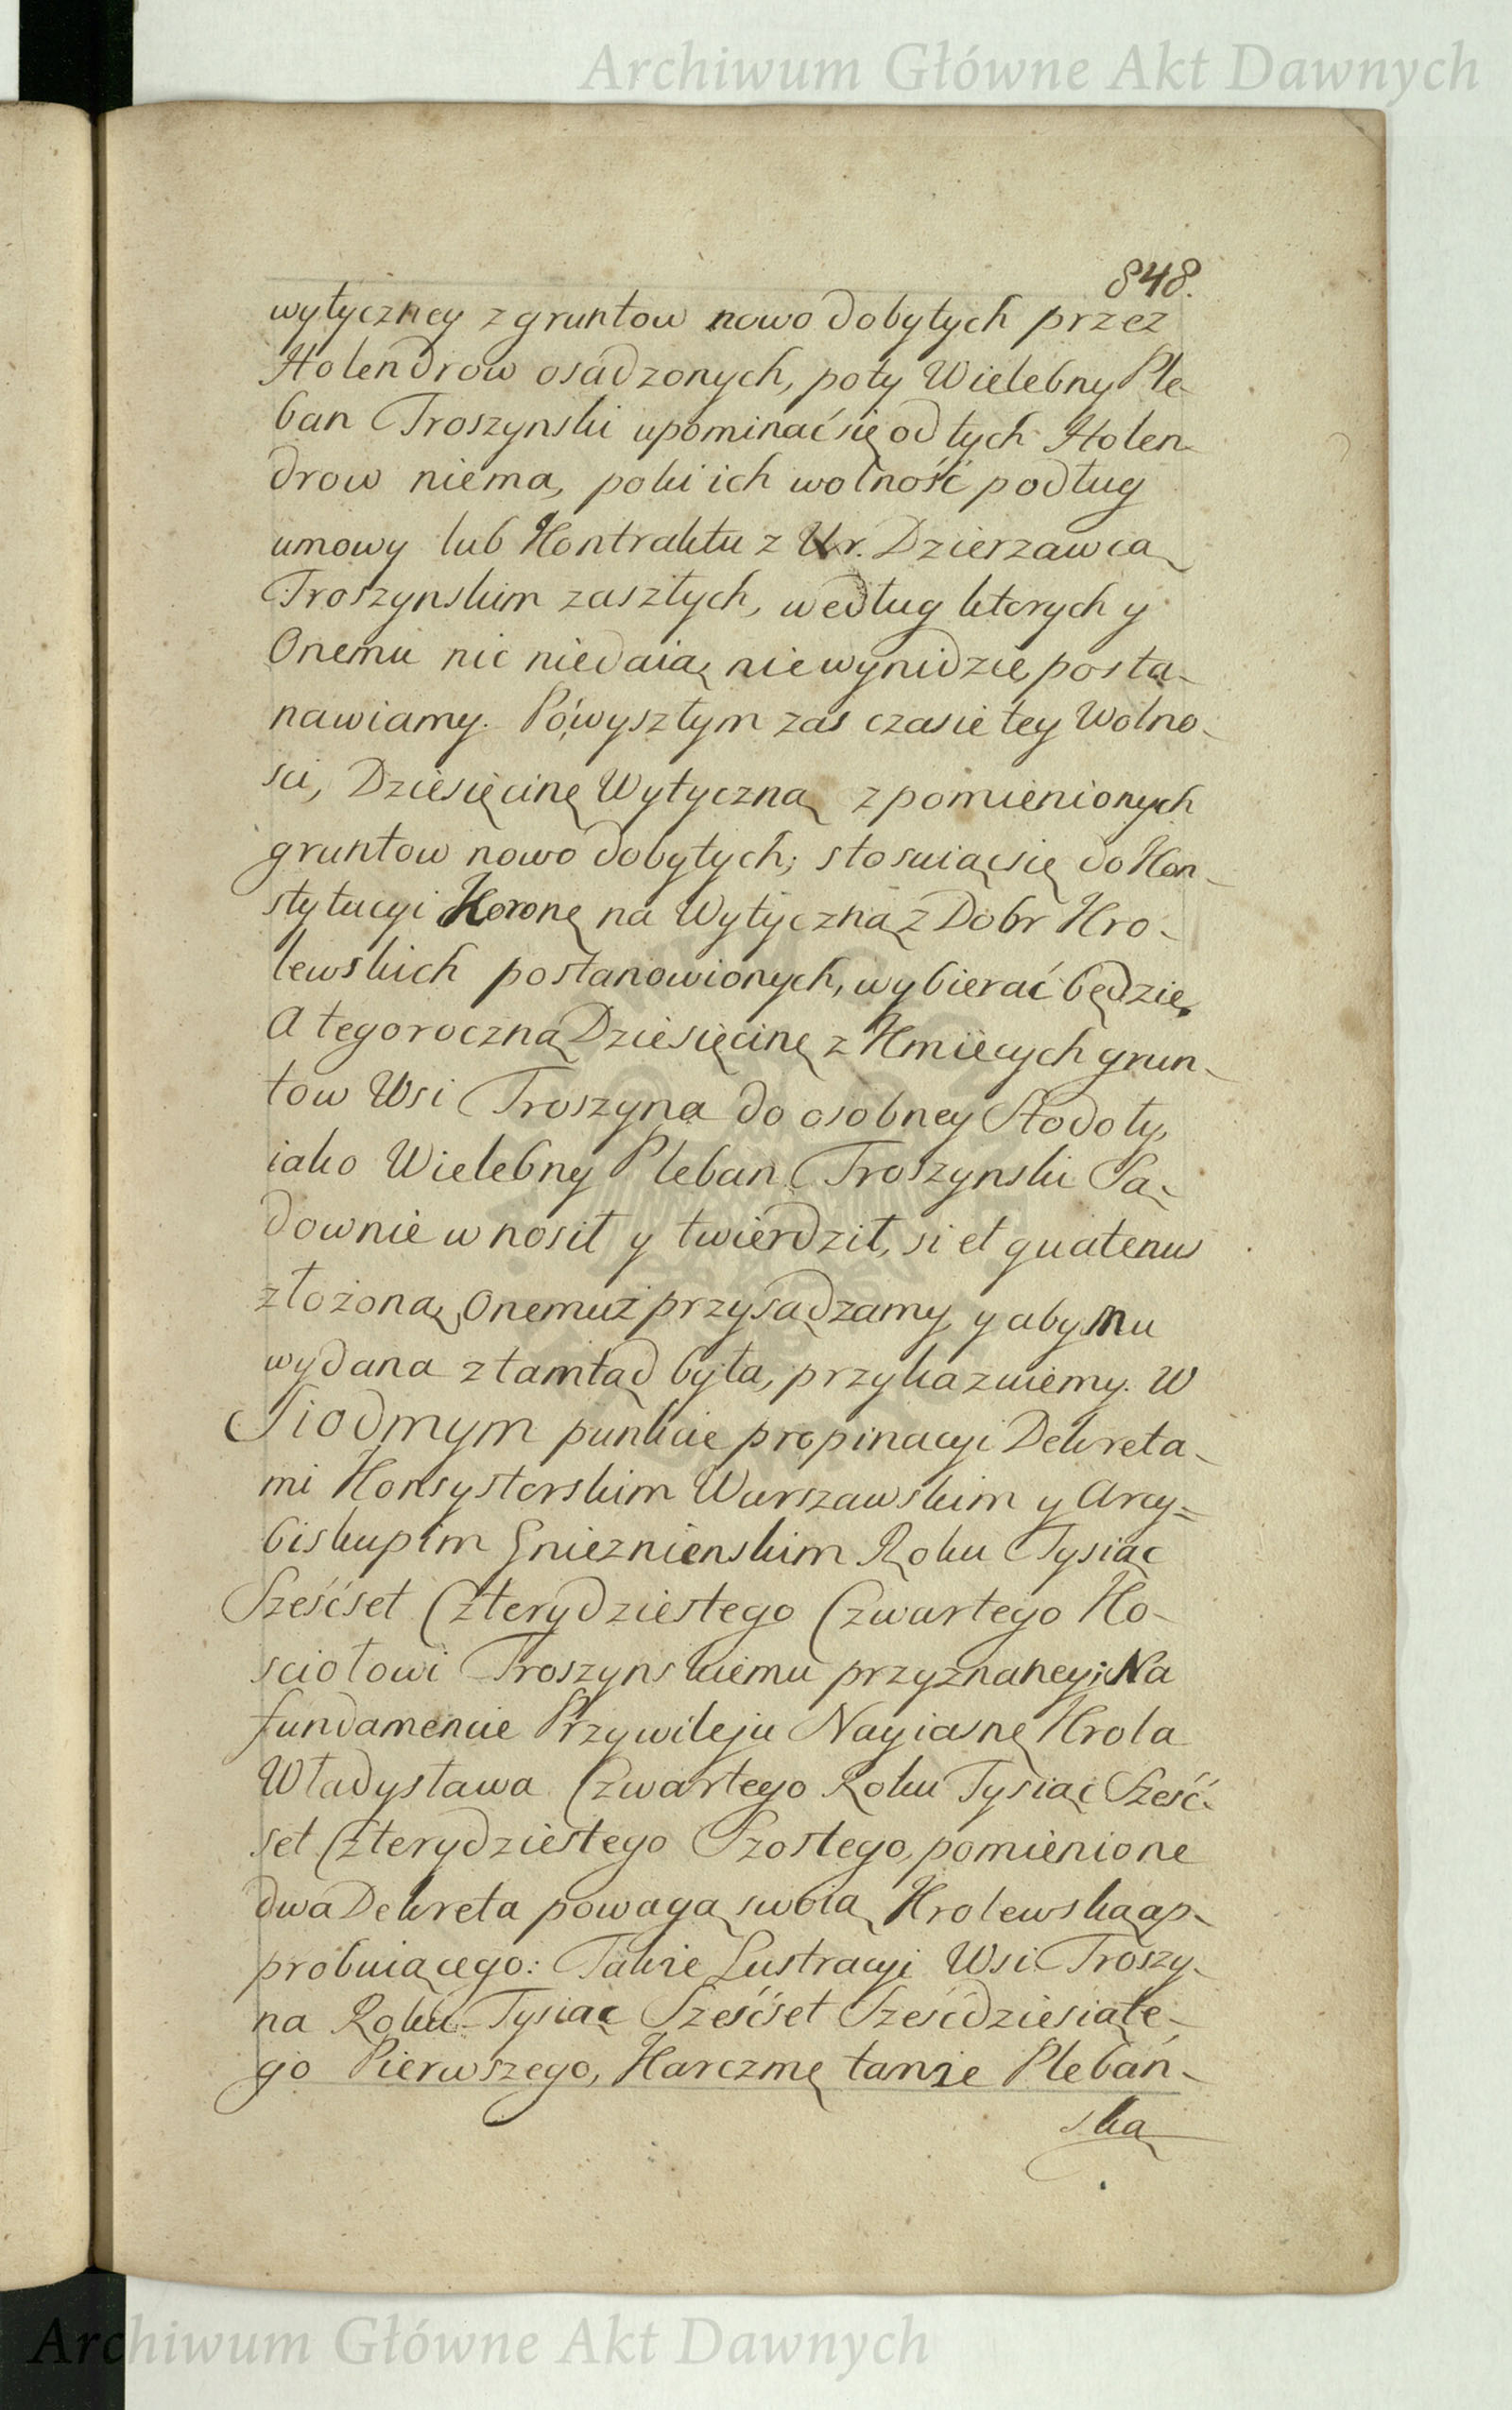 Archiwum Główne Akt Dawnych
848.
wytyczney z gruntow nowo dobytych przez
Holendrow osadzonych, poty Wielebny Ple-
ban Troszynski upominać się od tych Holen-
drow niema, poki ich wolność podług
umowy lub Kontraktu z Ur. Dzierzawcą
Troszynskim zaszłych, według ktorych y
Onemu nic niedaią, niewynidzie, posta-
nawiamy. Powyszłym zas czasie tey Wolno-
sci, Dziesięcinę Wytyczną z pomienionych
gruntow nowo dobytych; stosuiąc się do Kon-
stytucyi Koronę na Wytyczną z Dobr Kro-
lewskich postanowionych, wybierać będzie.
A tegoroczną Dziesięcinę z Kmiecych grun-
tow Wsi Troszyna do osobney Stodoły,
iako Wielebny Pleban Troszynski Są-
downie wnosił y twierdził, si et quatenus
złożoną, Onemuż przysądzamy, y aby mu
wydana ztamtąd była, przykazuiemy. W
Siodmym punkcie propinacyi Dekreta-
mi Konsystorskim Warszawskim y Arcy=
biskupim Gnieznienskim Roku Tysiąc
Sześćset Czterydziestego Czwartego Ko-
sciołowi Troszynskiemu przyznaney; Na
fundamencie Przywileju Nayiasnę Krola
Władysława Czwartego Roku Tysiąc Sześć-
set Czterydziestego Szostego, pomienione
dwa Dekreta powagą swoią Krolewską ap-
probuiącego: Takze Lustracyi Wsi Troszy-
na Roku Tysiąc Sześćset Sześćdziesiąte-
go Pierwszego, Karczmę tamze Plebań-
ską
Archiwum Główne Akt Dawnych